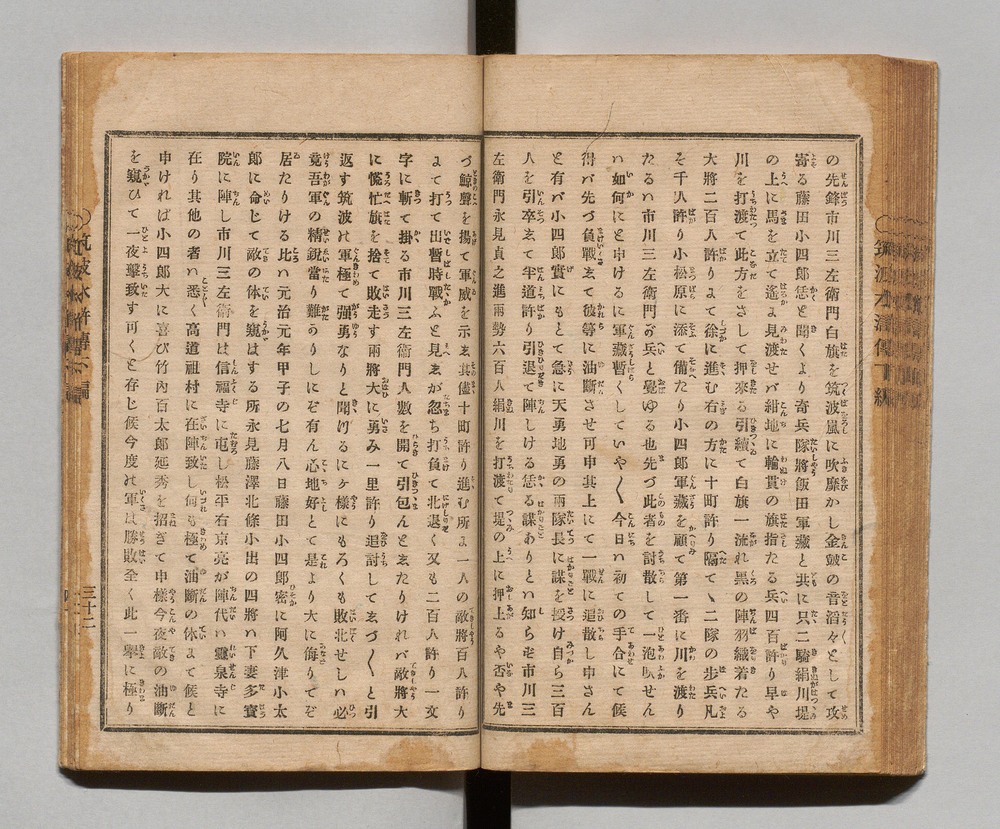 の先鋒市川三左衛門白旗を筑波嵐に吹靡かし金皷の音滔々として攻
寄る藤田小四郎恁と聞くより奇兵隊將飯田軍藏と共に只二騎絹川堤
の上に馬を立て遙よ見渡せバ紺地に輪貫の旗指たる兵四百許り早や
川を打渡て此方をさして押來る引續て白旗一流れ黒の陣羽織着たる
大將二百人許りよて徐に進む右の方に十町許り隔てヽ二隊の歩兵凡
そ千人許り小松原に添て備たり小四郎軍藏を顧て第一番に川を渡り
たるハ市川三左衛門が兵と覺ゆる也先づ此者を討散して一泡吹せん
ハ如何にと申けるに軍藏暫くしていや〱今日ハ初ての手合にて候
得バ先づ負戰ゑて彼等に油斷させ可申其上にて一戰に追散し申さん
と有バ小四郎實にもとて急に天勇地勇の兩隊長に謀を授け自ら三百
人を引卒ゑて半道許り引退て陣しける恁る謀ありとハ知ら老市川三
左衛門永見貞之進兩勢六百人絹川を打渡て堤の上に押上るや否や先
づ鯨聲を揚て軍威を示ゑ其儘十町許り進む所よ一人の敵將百人許り
よて打て出暫時戰ふと見ゑが忽ち打負て北退く又も二百人許り一文
字に斬て掛る市川三左衛門人數を開て引包んとゑたりけれバ敵將大
に慌忙旗を捨て敗走す兩將大に勇み一里許り追討してゑづ〱と引
返す筑波は軍極て強勇なりと聞けるにケ樣にもろくも敗北せしハ必
竟吾軍の精鋭當り難うりしにぞ有ん心地好とて是より大に侮りてぞ
居たりける比ハ元治元年甲子の七月八日藤田小四郎密に阿久津小太
郎に命じて敵の体を窺はする所永見藤澤北條小出の四將ハ下妻多寳
院に陣し市川三左衛門は信福寺に屯し松平右京亮が陣代ハ靈泉寺に
在り其他の者ハ悉く高道祖村に在陣致し何も極て油斷の体まて候と
申ければ小四郎大に喜び竹内百太郎延秀を招ぎて申樣今夜敵の油斷
を窺ひて一夜擊致す可くと存じ候今度は軍は勝敗全く此一擧に極り
三十二